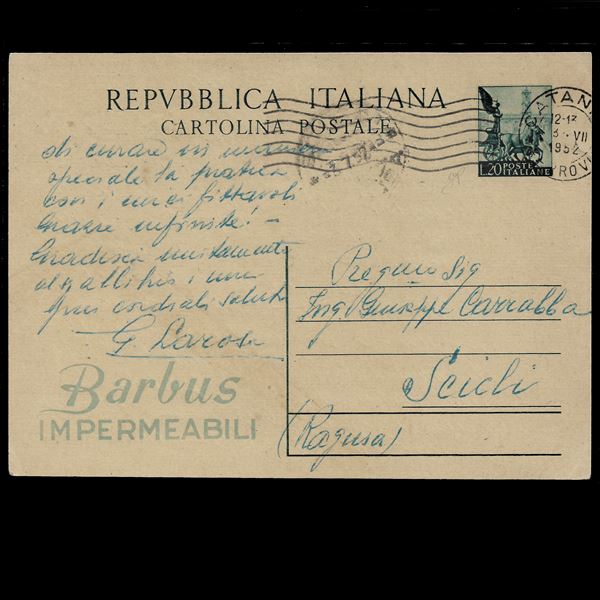 REPVBBLICA ITALIANA
CARTOLINA POSTALE
L.20 POSTE ITALIANE
CATAN
12-13
VII
1952
di curare in
speciale la pratica
con i miei fittavoli
Grazie infinite! -
Gradisca unitamente
i miei
più cordiali saluti
G. Larosa
Barbus
IMPERMEABILI
Pregmo Sig
Ing. Giuseppe Carrabba
Scicli
(Ragusa)